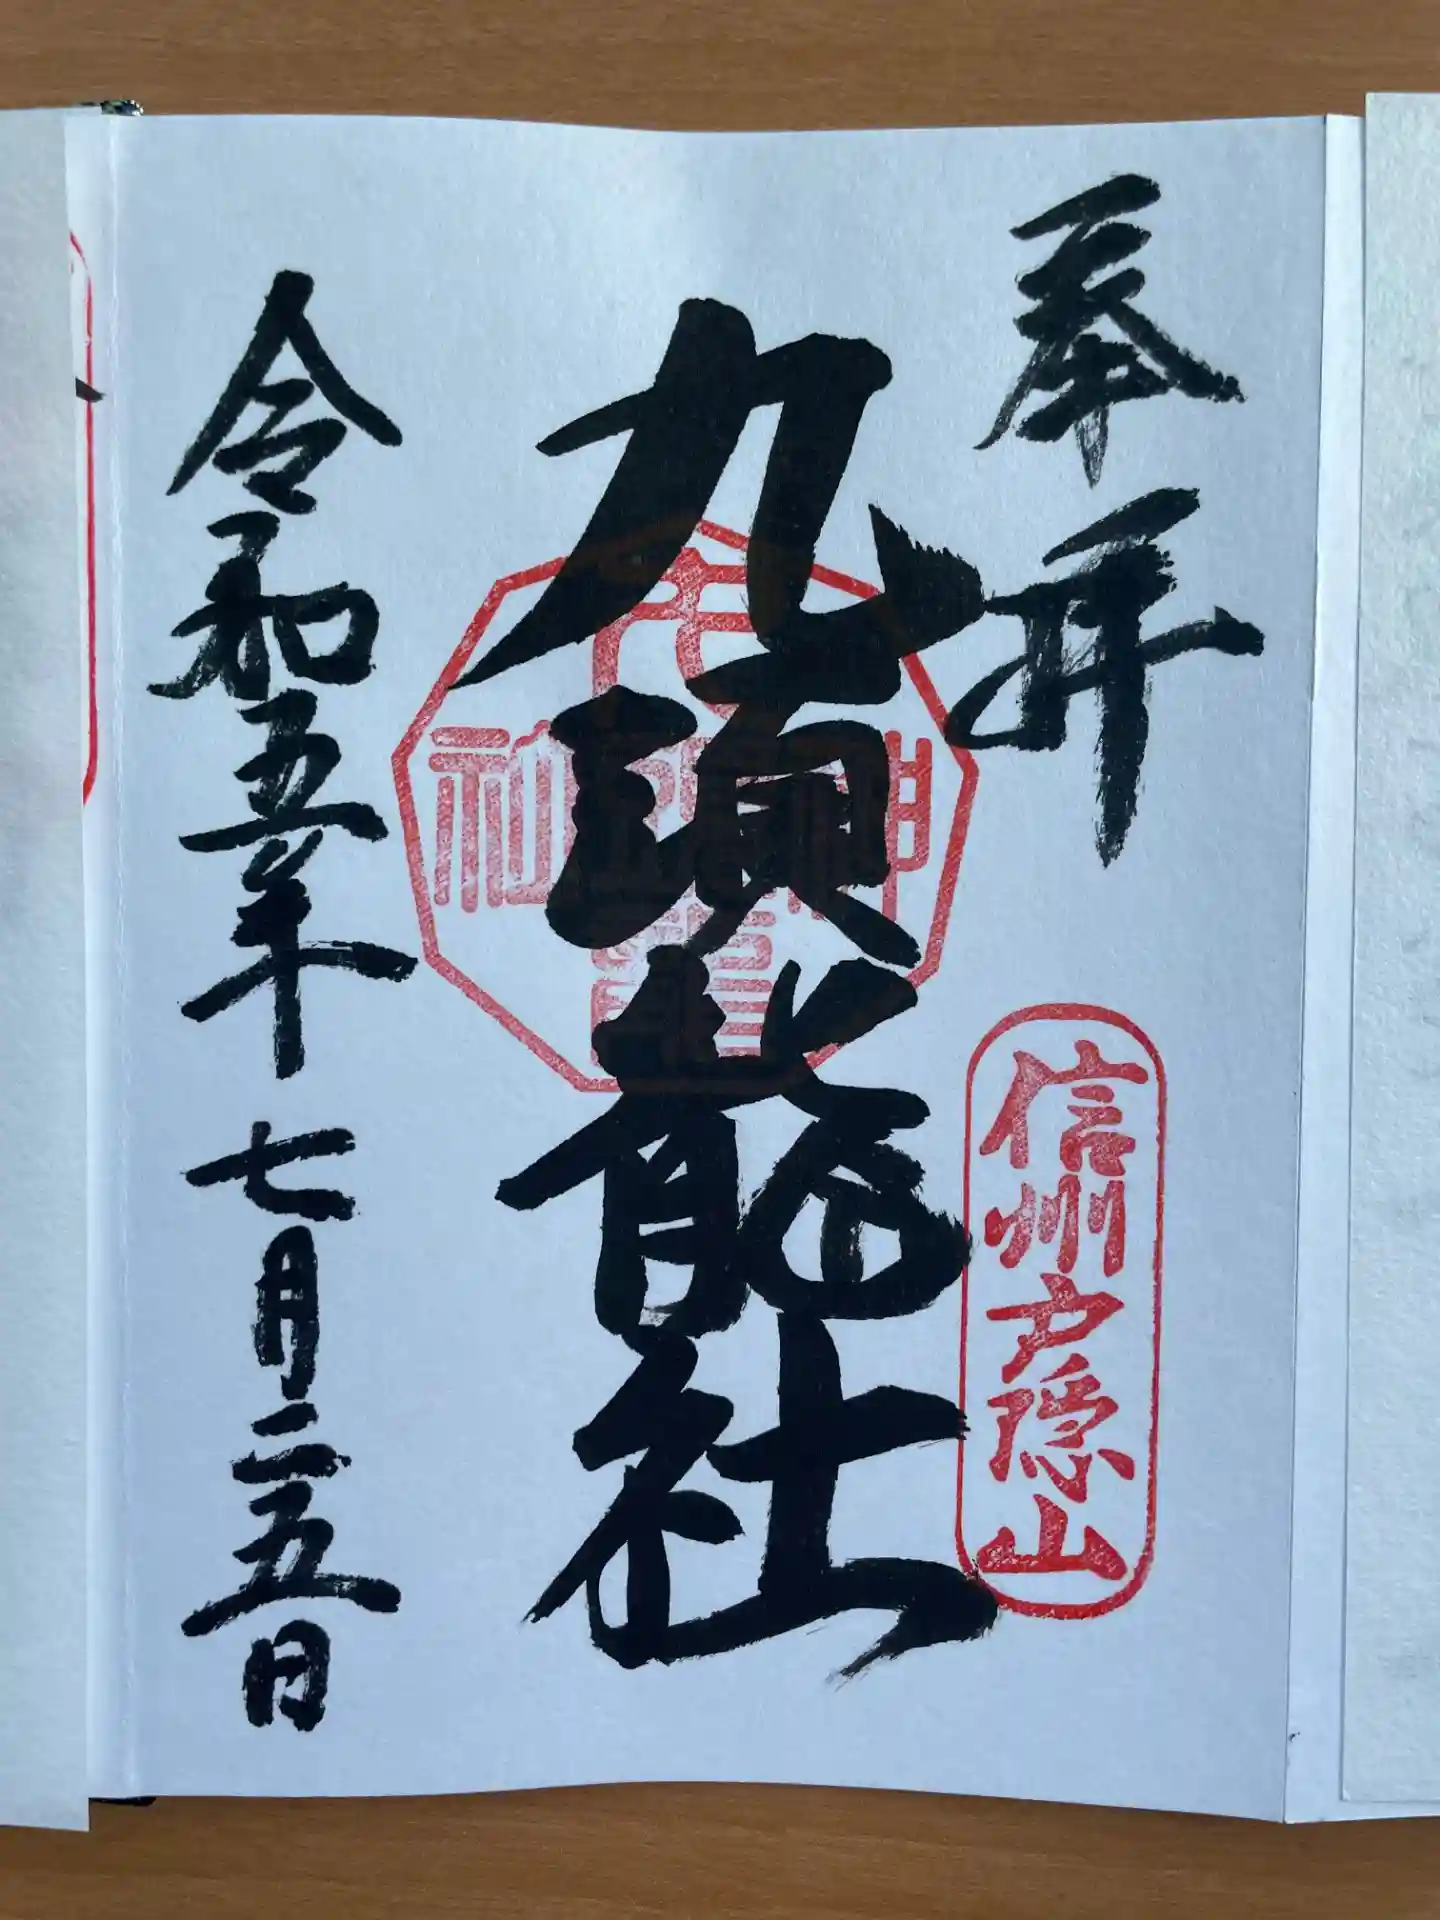 奉拝
信州戸隠山
九頭龍社
令和五年 七月二五日